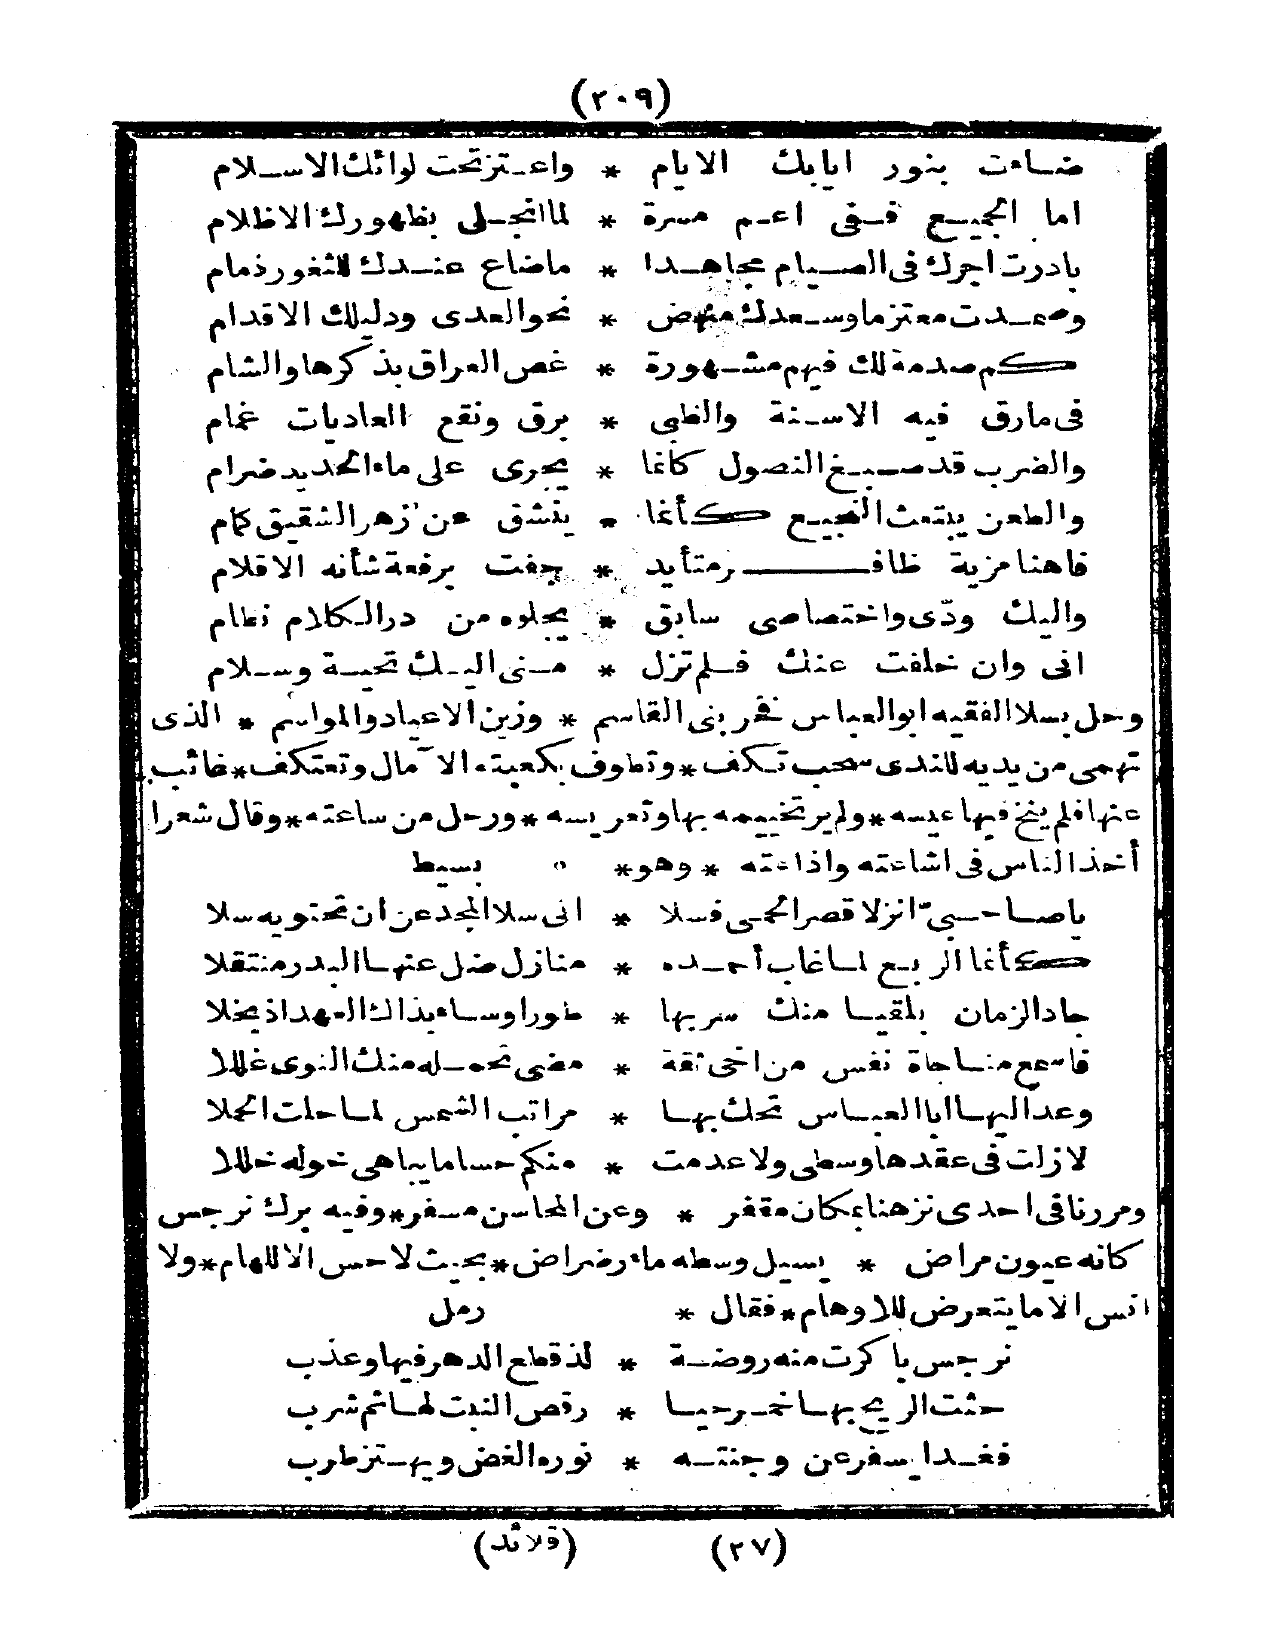 (٢٠٩)
ضاءت بنور ايابك الايام * واعتزتحت لوائك الاسلام
اما الجميع ففى اعم مسرة * لماانجلى بظهورك الاظلام
بادرت اجرك فى الصيام مجاهدا * ماضاع عندك للثغور ذمام
وصعدت معتزما وسعدك منهض * نحو العدى ودليلك الاقدام
كم صدمة لك فيهم مشهورة * غص العراق بذكرها والشام
فى مارق فيه الاسنة والظبى * برق ونقع العاديات غمام
والضرب قد صبغ النصول كانما * يجرى على ماء الحديد ضرام
والطعن يبتعث النجيع كأنما * ينشق عن زهر الشقيق كمام
فاهنا مزية ظافر متأيد * جفت برفعة شأنه الاقلام
واليك ودّى واختصاصى سابق * يجلوه من در الكلام نظام
انى وان خلفت عنك فلم تزل * منى اليك تحية وسلام
وحل بسلا الفقيه ابوالعباس فخر بنى القاسم * وزين الاعياد والمواسم * الذى
تهمى من يديه للندى سحب تكف * وتطوف بكعبته الآمال وتعتكف * فائب
عنها فلم ينخ فيها عيسه * ولم ير تخييمه بها وتعريسه * ورحل من ساعته * وقال شعرا
أخذ الناس فى اشاعته واذاعته * وهو * بسيط
ياصاحبىّ انزلا قصر الحمى فسلا * انى سلا المجد عن ان تحتويه سلا
كأنما الربع لما غاب أحمده * منازل ضل عنها البدر منتقلا
جاد الزمان بلقيا منك سربها * طورا وساء بذاك العهد اذ بخلا
فاسمع مناجاة نفس من اخى ثقة * مضى تحمله منك النوى غللا
وعد اليها ابا العباس تحك بها * مراتب الشمس لما حلت الحملا
لازلت فى عقدها وسطى ولا عدمت * منكم حساما يباهى خوله خللا
ومررنا فى احدى نزهنا بمكان مقفر * وعن المحاسن مسفر * وفيه برك نرجس
كانه عيون مراض * يسيل وسطه ماء رضراض * بحيث لاحس الا للهام * ولا
انس الا ما يتعرض للاوهام * فقال * رمل
نرجس باكرت منه روضة * لذ قطع الدهر فيها وعذب
حثت الريح بها خمر حيا * رقص النبت لها ثم شرب
فغدا يسفر عن وجنته * نوره الغض ويهتز طرب
(٢٧) (قلائد)